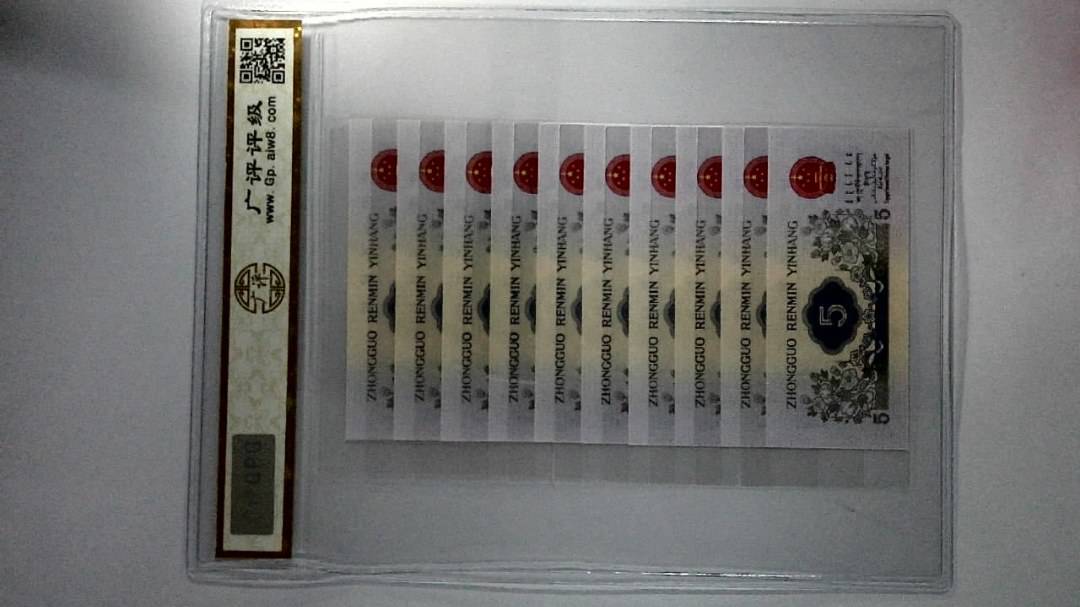 广评评级
www. Gp. aiw8. com
广评
ZHONGGUO RENMIN YINHANG
ZHONGGUO RENMIN YINHANG
ZHONGGUO RENMIN YINHANG
ZHONGGUO RENMIN YINHANG
ZHONGGUO RENMIN YINHANG
ZHONGGUO RENMIN YINHANG
ZHONGGUO RENMIN YINHANG
ZHONGGUO RENMIN YINHANG
ZHONGGUO RENMIN YINHANG
ZHONGGUO RENMIN YINHANG
5
5 5